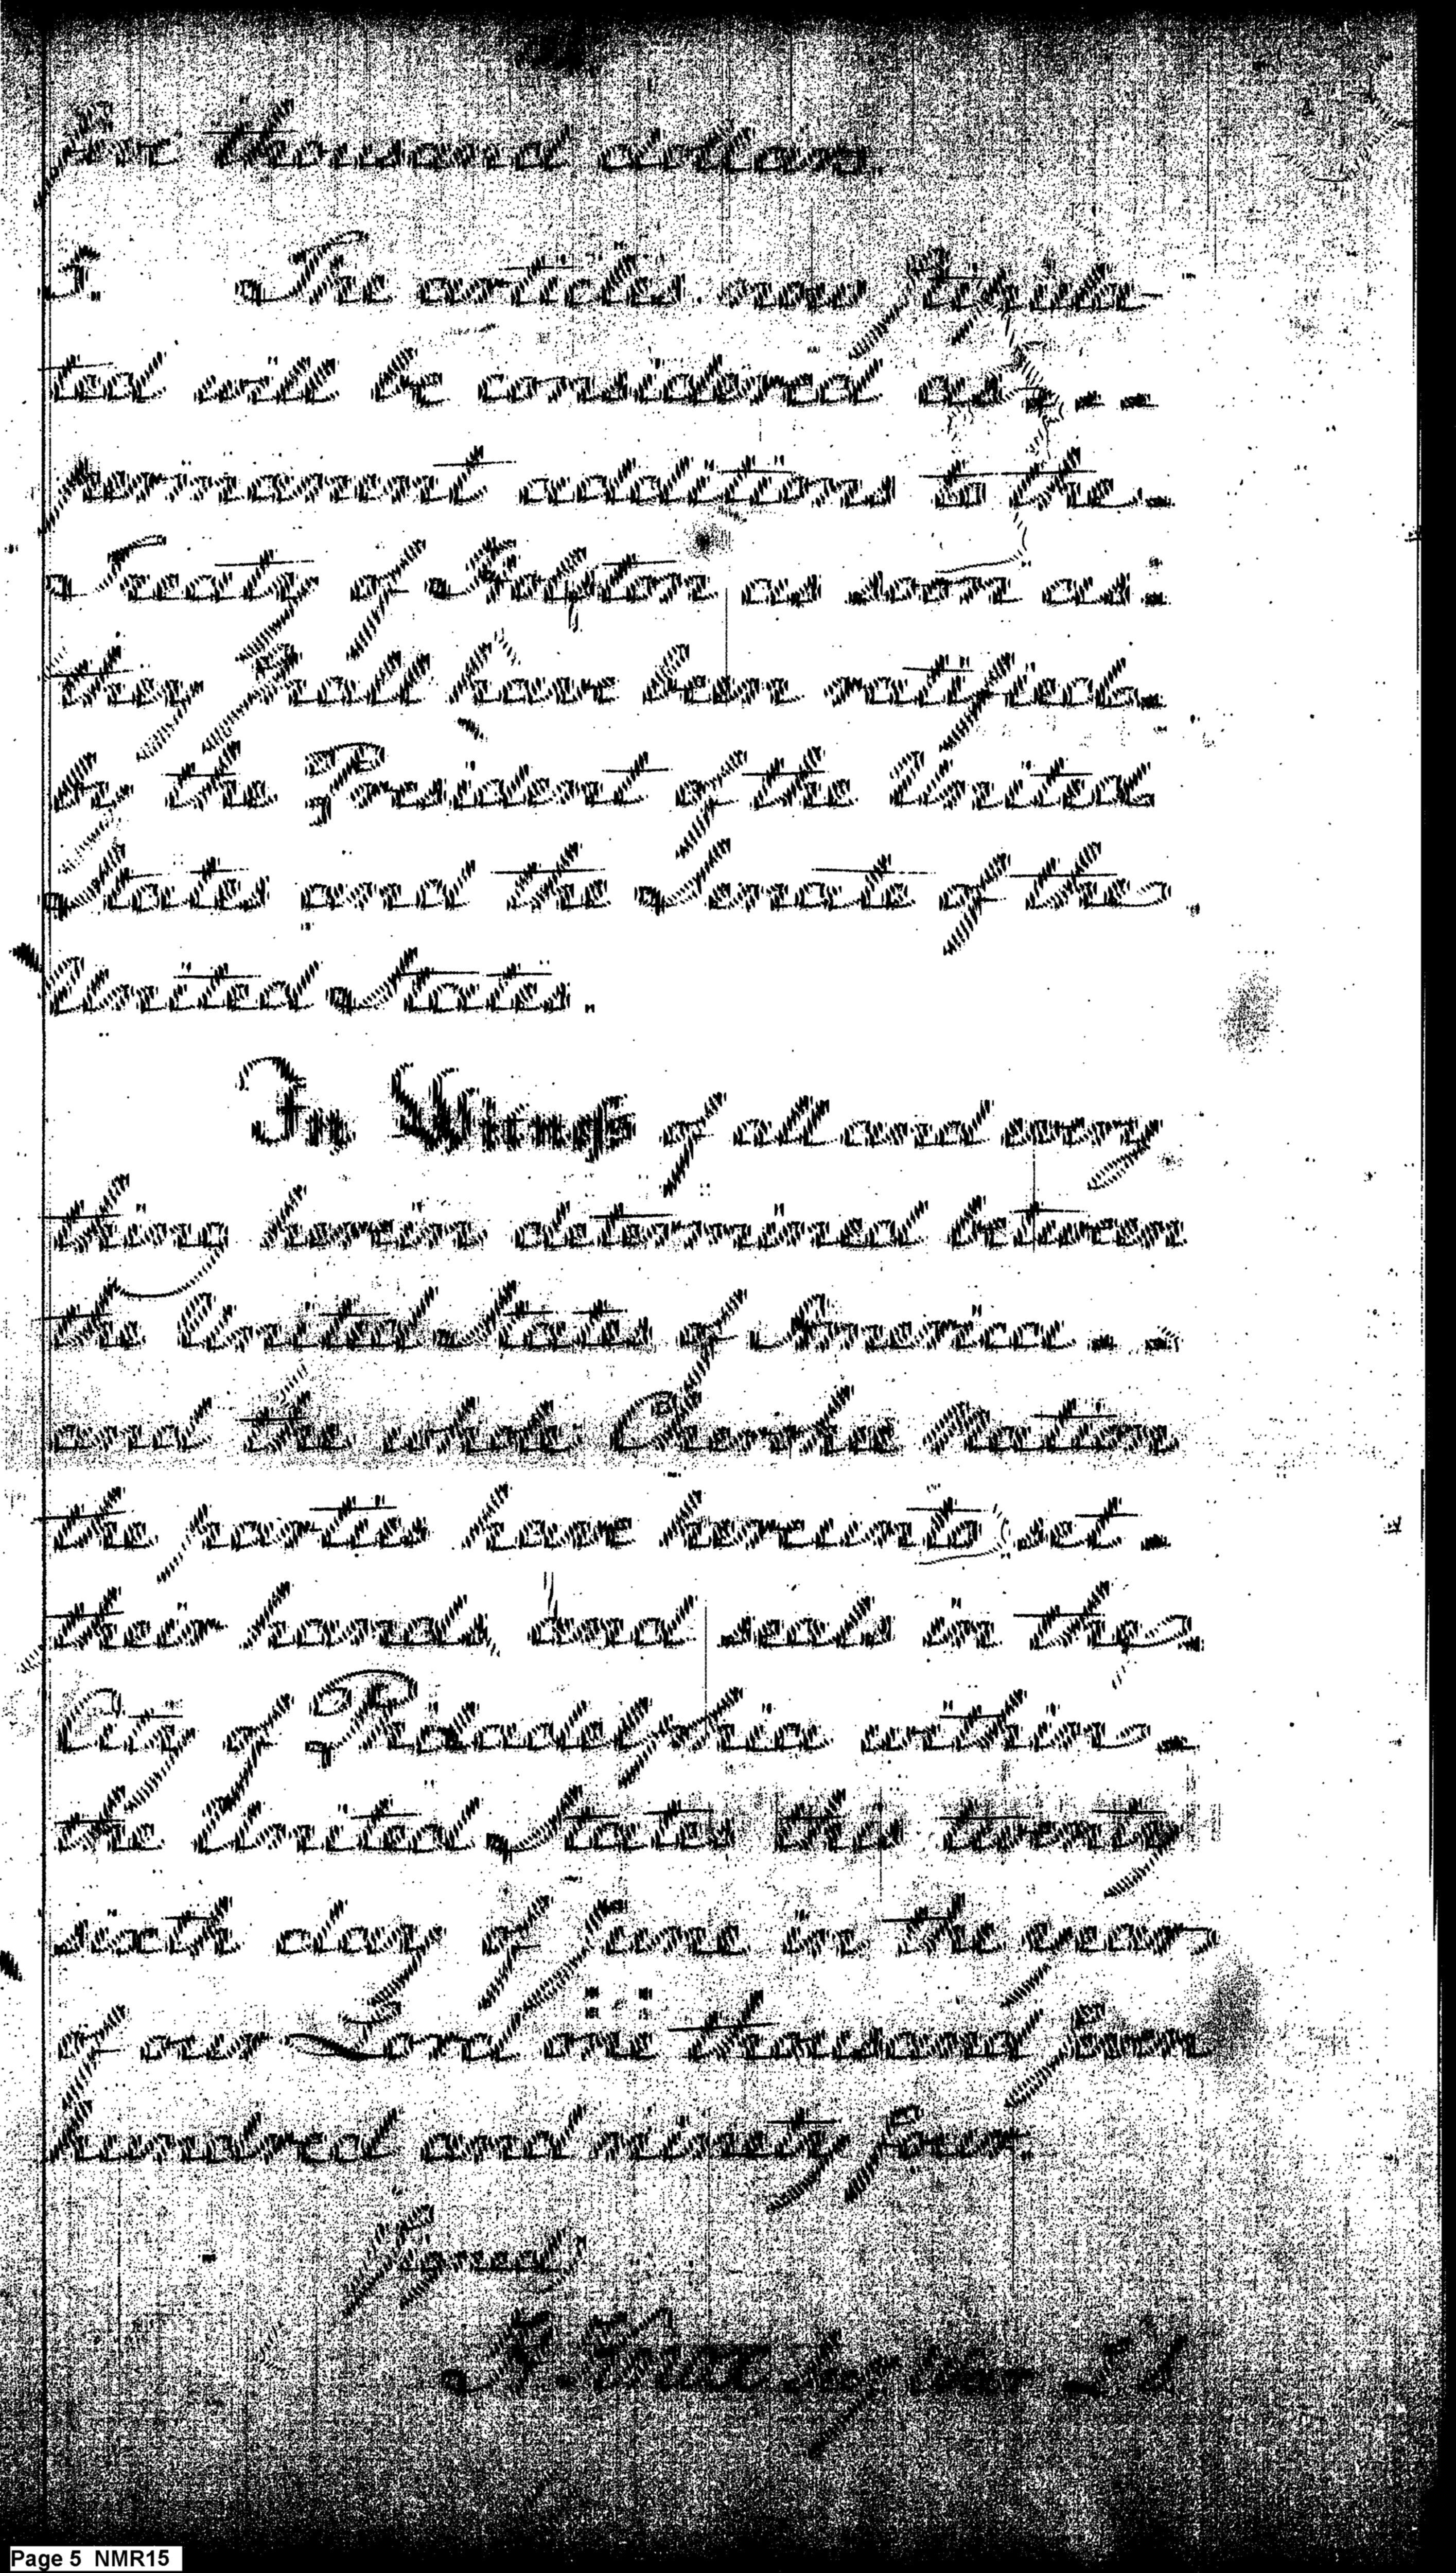 five thousand dollars.
5. The articles now stipula-
ted will be considered as - - -
permanent additions to the -
Treaty of Holston as soon as :
they shall have been ratified -
by the President of the United
States and the Senate of the
United States.
In Witness of all and every
thing herein determined between
the United States of America - -
and the whole Cherokee Nation
the parties have hereunto set -
their hands, and seals in the
City of Philadelphia within -
the United States this twenty
sixth day of June in the year
of our Lord one thousand seven
hundred and ninety four.
Signed
Page 5 NMR15